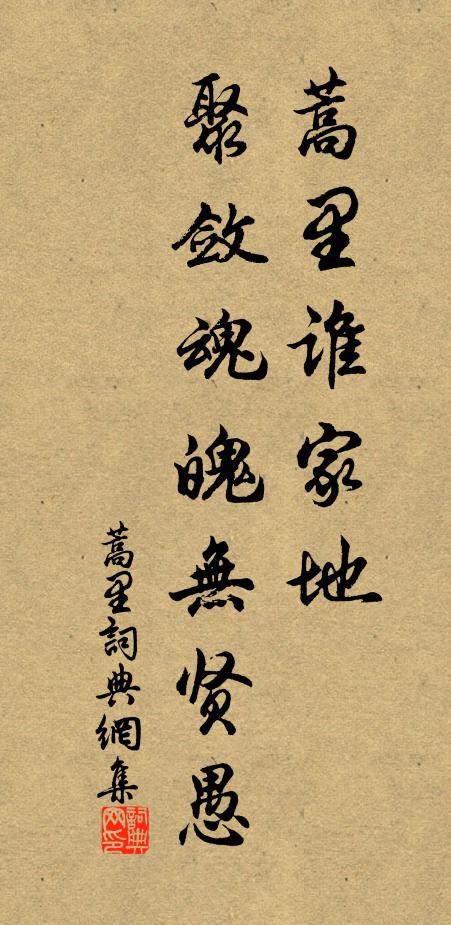 蒿里誰家地
聚斂魂魄無贤愚
蒿里詞典網集
詞典網印